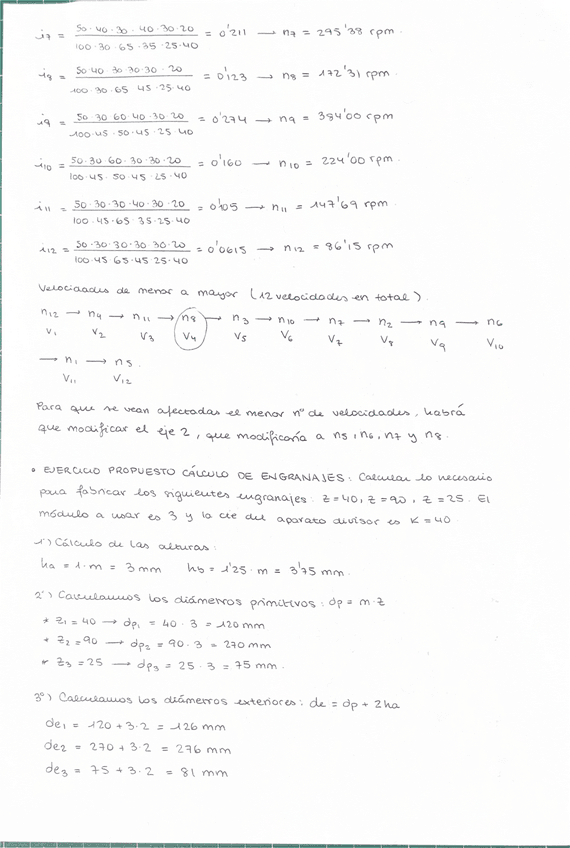 i7 = 50·40·30·40·30·20 / 100·30·65·35·25·40 = 0'211 → n7 = 295'38 rpm.
i8 = 50·40·30·30·30·20 / 100·30·65·45·25·40 = 0'123 → n8 = 172'31 rpm.
i9 = 50·30·60·40·30·20 / 100·45·50·45·25·40 = 0'274 → n9 = 384'00 rpm
i10 = 50·30·60·30·30·20 / 100·45·50·45·25·40 = 0'160 → n10 = 224'00 rpm.
i11 = 50·30·30·40·30·20 / 100·45·65·35·25·40 = 0'105 → n11 = 147'69 rpm.
i12 = 50·30·30·30·30·20 / 100·45·65·45·25·40 = 0'0615 → n12 = 86'15 rpm
Velocidades de menor a mayor (12 velocidades en total).
n12 → n4 → n11 → n8 → n3 → n10 → n7 → n2 → n9 → n6
V1 V2 V3 V4 V5 V6 V7 V8 V9 V10
→ n1 → n5.
V11 V12
Para que se vean afectadas el menor nº de velocidades, habrá
que modificar el eje 2, que modificaría a n5, n6, n7 y n8.
• EJERCICIO PROPUESTO CÁLCULO DE ENGRANAJES: Calcular lo necesario
para fabricar los siguientes engranajes: z=40, z=90, z=25. El
módulo a usar es 3 y la cte del aparato divisor es K=40.
1º) Cálculo de las alturas:
ha = 1·m = 3 mm hb = 1'25·m = 3'75 mm.
2º) Calculamos los diámetros primitivos: dp = m·z
* z1=40 → dp1 = 40·3 = 120 mm
* z2=90 → dp2 = 90·3 = 270 mm
* z3=25 → dp3 = 25·3 = 75 mm.
3º) Calculamos los diámetros exteriores: de = dp + 2ha
de1 = 120+3·2 = 126 mm
de2 = 270+3·2 = 276 mm
de3 = 75+3·2 = 81 mm